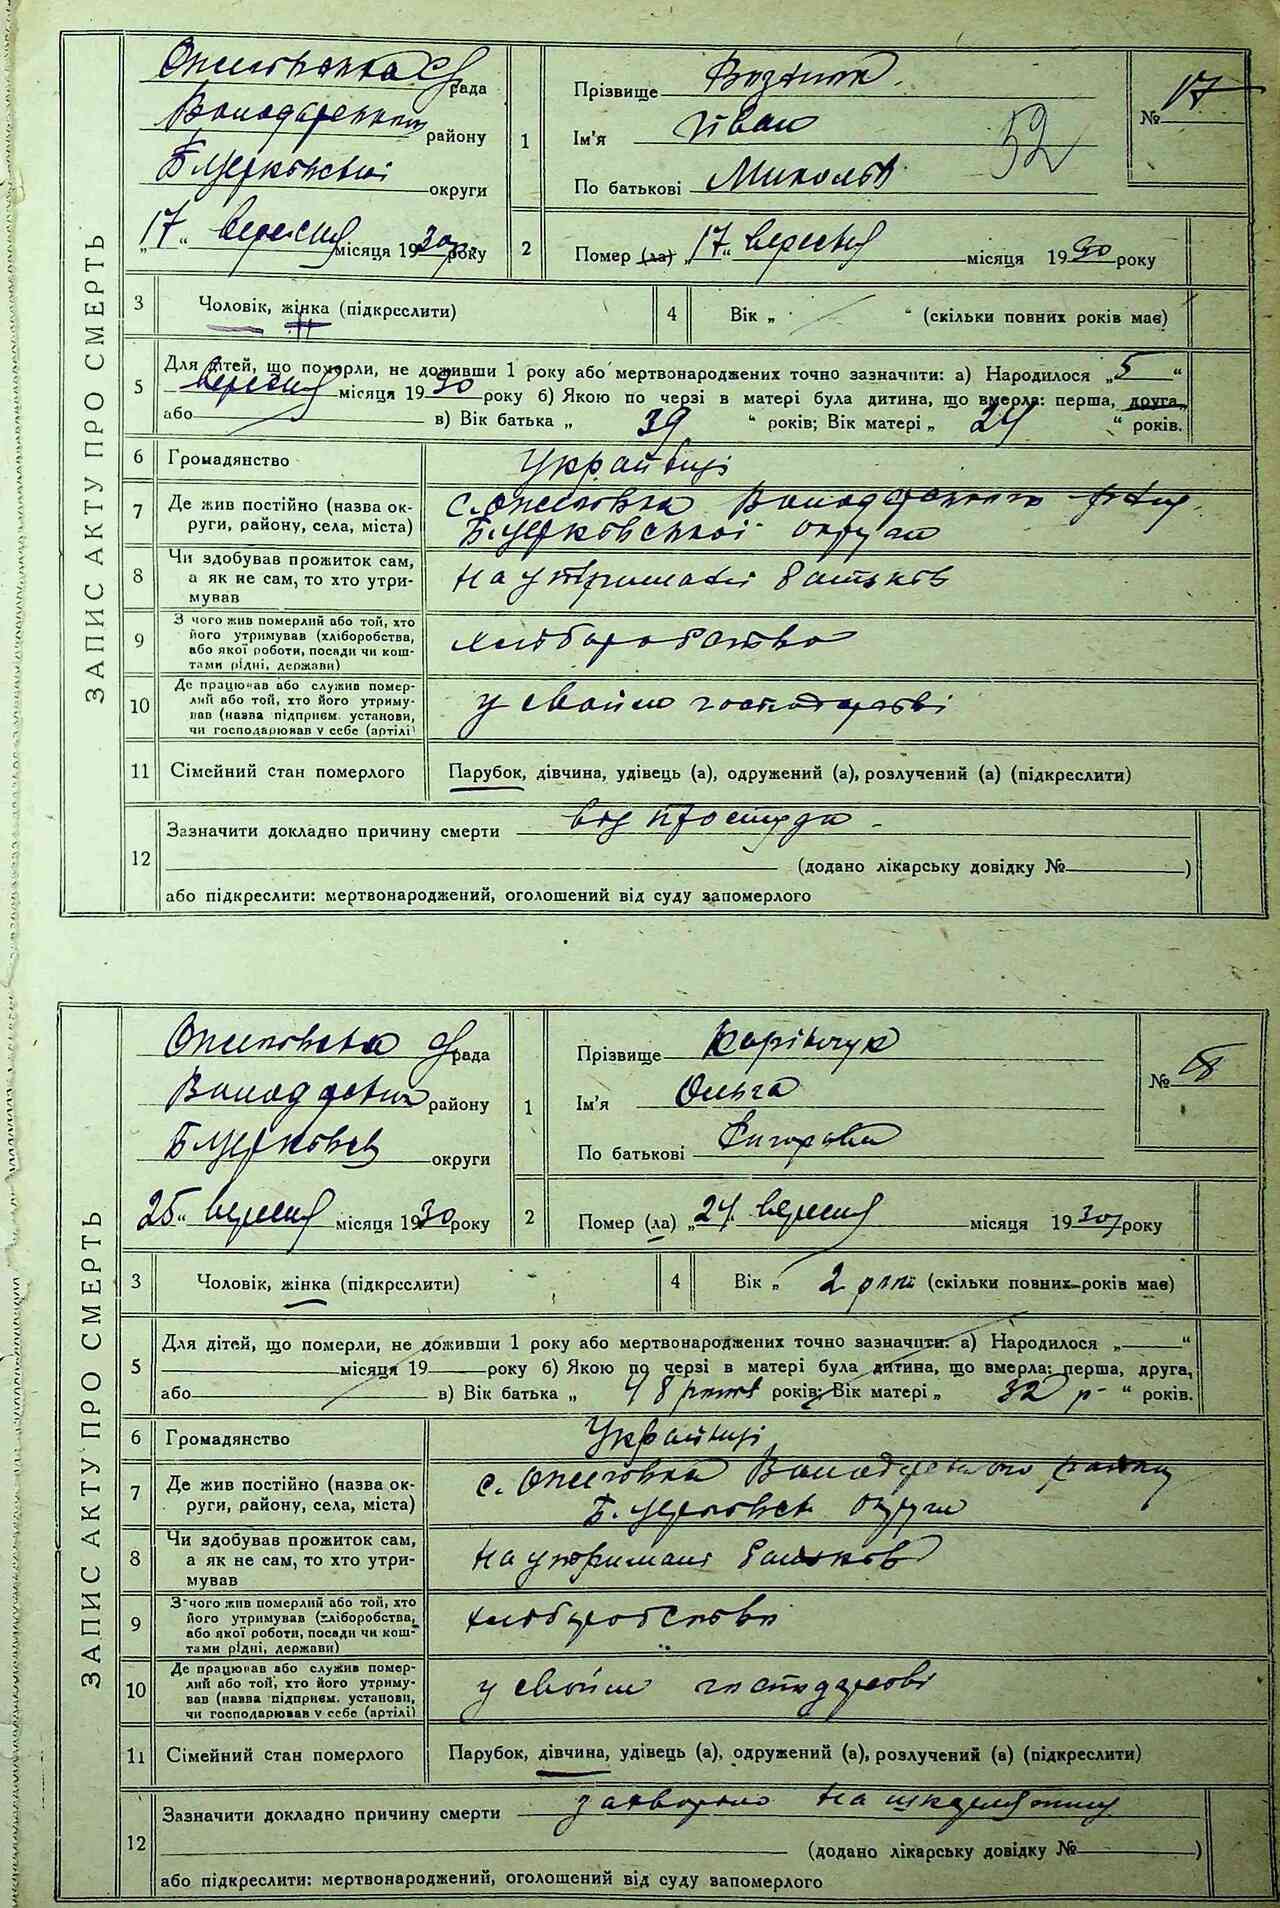 ЗАПИС АКТУ ПРО СМЕРТЬ
рада
району
Б Церковської округи
„17“ вересня місяця 1930 року
1 Прізвище
Ім'я Іван
По батькові Миколов
52
№ 17
2 Помер (ла) „17“ вересня місяця 1930 року
3 Чоловік, жінка (підкреслити)
4 Вік „ “ (скільки повних років має)
5 Для дітей, що померли, не доживши 1 року або мертвонароджених точно зазначити: а) Народилося „5“
вересня місяця 1930 року б) Якою по черзі в матері була дитина, що вмерла: перша, друга,
або в) Вік батька „ 39 “ років; Вік матері „ 24 “ років.
6 Громадянство Українці
7 Де жив постійно (назва округи, району, села, міста) с. Ожеговка Володарського району
Б. Церковської округи
8 Чи здобував прожиток сам, а як не сам, то хто утримував на утриманні батьків
9 З чого жив померлий або той, хто його утримував (хліборобства, або якої роботи, посади чи коштами рідні, держави) хліборобство
10 Де працював або служив померлий або той, хто його утримував (назва підприєм. установи, чи господарював у себе (артілі) у своїм господарстві
11 Сімейний стан померлого Парубок, дівчина, удівець (а), одружений (а), розлучений (а) (підкреслити)
12 Зазначити докладно причину смерти від простуди
(додано лікарську довідку № )
або підкреслити: мертвонароджений, оголошений від суду запомерлого
ЗАПИС АКТУ ПРО СМЕРТЬ
рада
району
Б Церковськ округи
25“ вересня місяця 1930 року
1 Прізвище
Ім'я Ольга
По батькові
№ 18
2 Помер (ла) „24“ вересня місяця 1930 року
3 Чоловік, жінка (підкреслити)
4 Вік „ 2 роки (скільки повних років має)
5 Для дітей, що померли, не доживши 1 року або мертвонароджених точно зазначити: а) Народилося „ “
місяця 19 року б) Якою по черзі в матері була дитина, що вмерла: перша, друга,
або в) Вік батька „ 48 років; Вік матері „ 32 р “ років.
6 Громадянство Українці
7 Де жив постійно (назва округи, району, села, міста) с. Ожеговка Володарського району
Б. Церковськ округи
8 Чи здобував прожиток сам, а як не сам, то хто утримував на утримані батьків
9 З чого жив померлий або той, хто його утримував (хліборобства, або якої роботи, посади чи коштами рідні, держави) хліборобство
10 Де працював або служив померлий або той, хто його утримував (назва підприєм. установи, чи господарював у себе (артілі) у своїм господарстві
11 Сімейний стан померлого Парубок, дівчина, удівець (а), одружений (а), розлучений (а) (підкреслити)
12 Зазначити докладно причину смерти на
(додано лікарську довідку № )
або підкреслити: мертвонароджений, оголошений від суду запомерлого